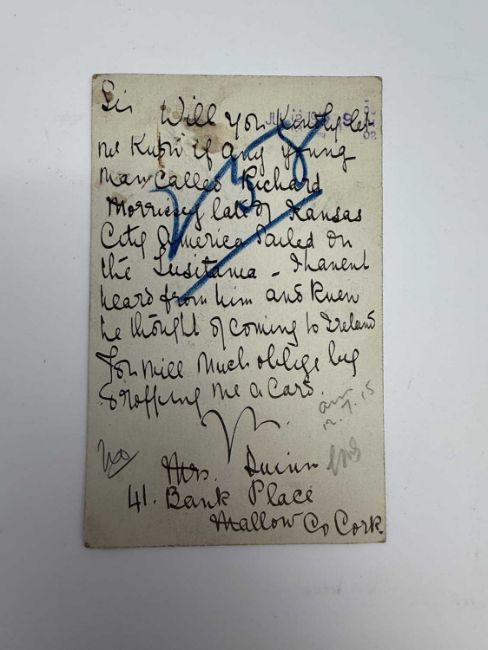 Sir Will you Kindly let
me Know if any young
man called Richard
Morrissey late of Kansas
City America sailed on
the Lusitania - I havent
heard from him and knew
he thought of coming to Ireland
You will much oblige by
dropping me a Card.
no
Mrs. Quinn
41. Bank Place
Mallow Co Cork